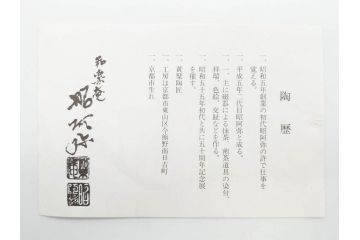 陶歴
一、昭和五年創業の初代昭阿弥の許で仕事を
覚える。
一、平成五年二代目昭阿弥と成る。
一、主に磁器による抹茶、煎茶道具の染付、
祥瑞、色絵、交趾などを作る。
一、昭和五十五年初代と共に五十周年記念展
を催す。
一、黄檗陶匠
一、工房は京都市東山区今熊野南日吉町
一、京都市生れ
昭阿弥